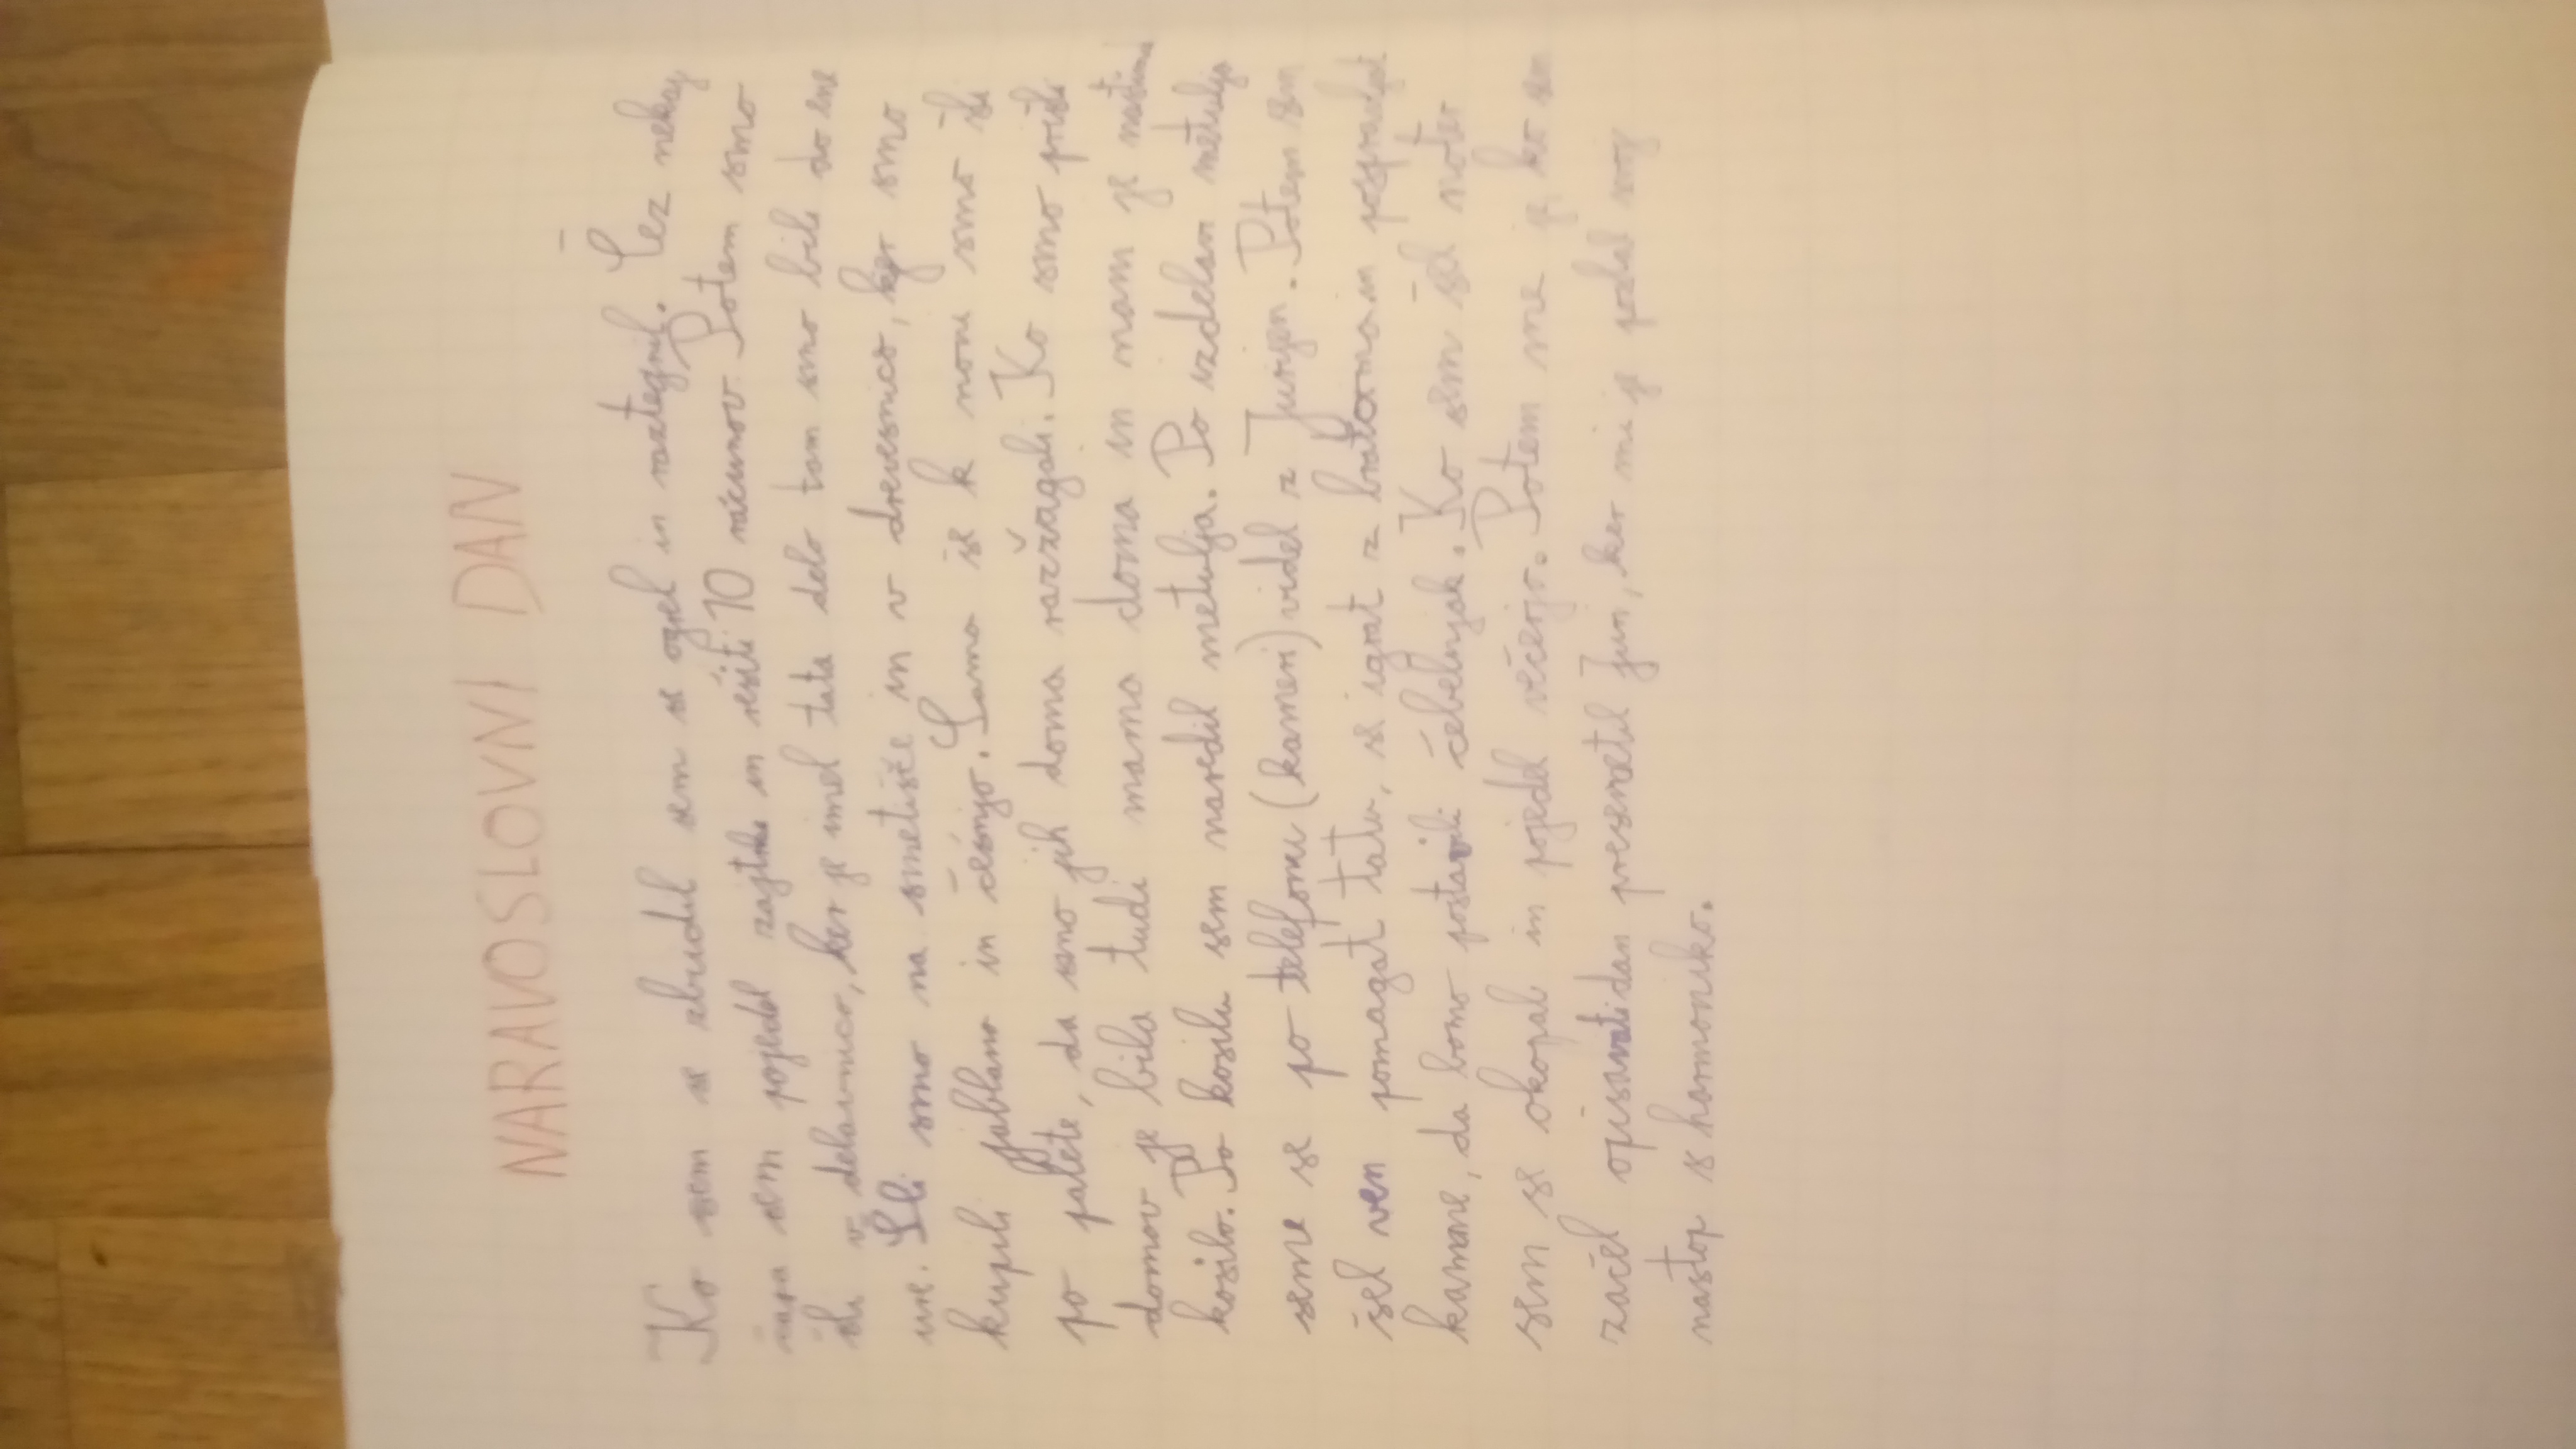 NARAVOSLOVNI DAN
Ko sem se zbudil sem se ogrel in raztegnil. Čez nekaj
časa sem pojedel zajtrk in rešiti 10 računov. Potem smo
šli v delavnico, ker je imel tata delo tam smo bili do ene
ure. Šli smo na smetišče in v drevesnico, kjer smo
kupili jablano in češnjo. Samo še k noni smo šli
po palete, da smo jih doma razžagali. Ko smo prišli
domov je bila tudi mama doma in nam je
kosilo. Po kosilu sem naredil metulja. Po izdelavi metulja
seme se po telefonu (kameri) videl z Jurijem. Potem sem
šel ven pomagat tatu, se igrat z bratoma in pospravljat
kamne, da bomo postavili čebelnjak. Ko sem šel noter
sem se okopal in pojedel večerjo. Potem me je, ko sem
začel opisovati dan presenetil Juri, ker mi je poslal svoj
nastop s harmoniko.